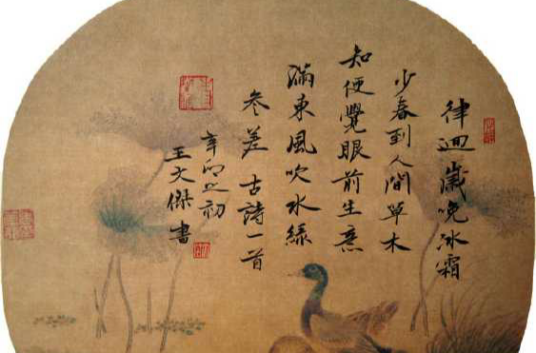 律迴歲晚冰霜
少春到人間草木
知便覺眼前生意
滿東風吹水綠
參差 古詩一首
辛卯之初
王文傑書